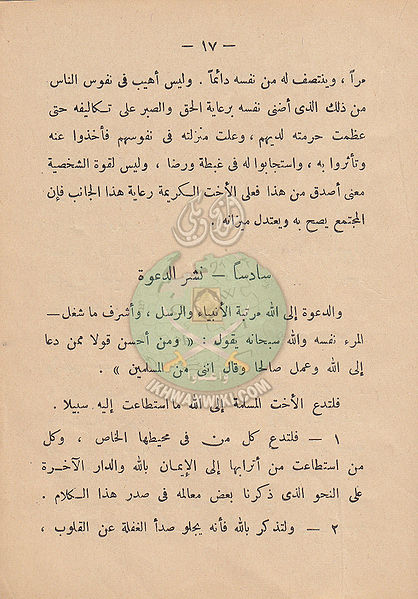 — ١٧ —
مراً ، وينتصف له من نفسه دائماً . وليس أهيب فى نفوس الناس
من ذلك الذى أضنى نفسه برعاية الحق والصبر على تكاليفه حتى
عظمت حرمته لديهم ، وعلت منزلته فى نفوسهم فأخذوا عنه
وتأثروا به ، واستجابوا له فى غبطة ورضا ، وليس لقوة الشخصية
معنى أصدق من هذا فعلى الأخت الكريمة رعاية هذا الجانب فإن
المجتمع يصح به ويعتدل ميزانه .
سادساً — نشر الدعوة
والدعوة إلى الله مرتبة الأنبياء والرسل ، وأشرف ما شغل —
المرء نفسه والله سبحانه يقول : « ومن أحسن قولا ممن دعا
إلى الله وعمل صالحا وقال اننى من المسلمين » .
فلتدع الأخت المسلمة إلى الله ما استطاعت إليه سبيلا .
١ — فلتدع كل من فى محيطها الخاص ، وكل
من استطاعت من أترابها إلى الإيمان بالله والدار الآخرة
على النحو الذى ذكرنا بعض معالمه فى صدر هذا الكلام .
٢ — ولتذكر بالله فأنه يجلو صدأ الغفلة عن القلوب ،
وأعدوا
IKHWANWIKI.COM